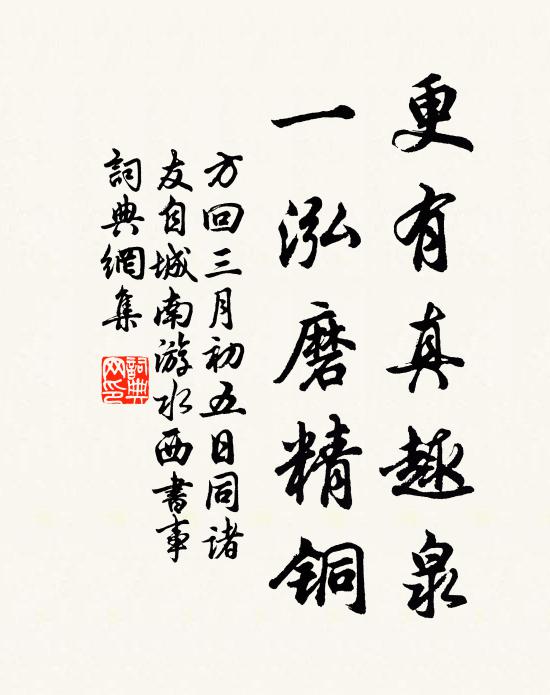 更有真趣泉
一泓磨精铜
方回三月初五日同诸
友自城南游水西書事
詞典網集
詞典网印